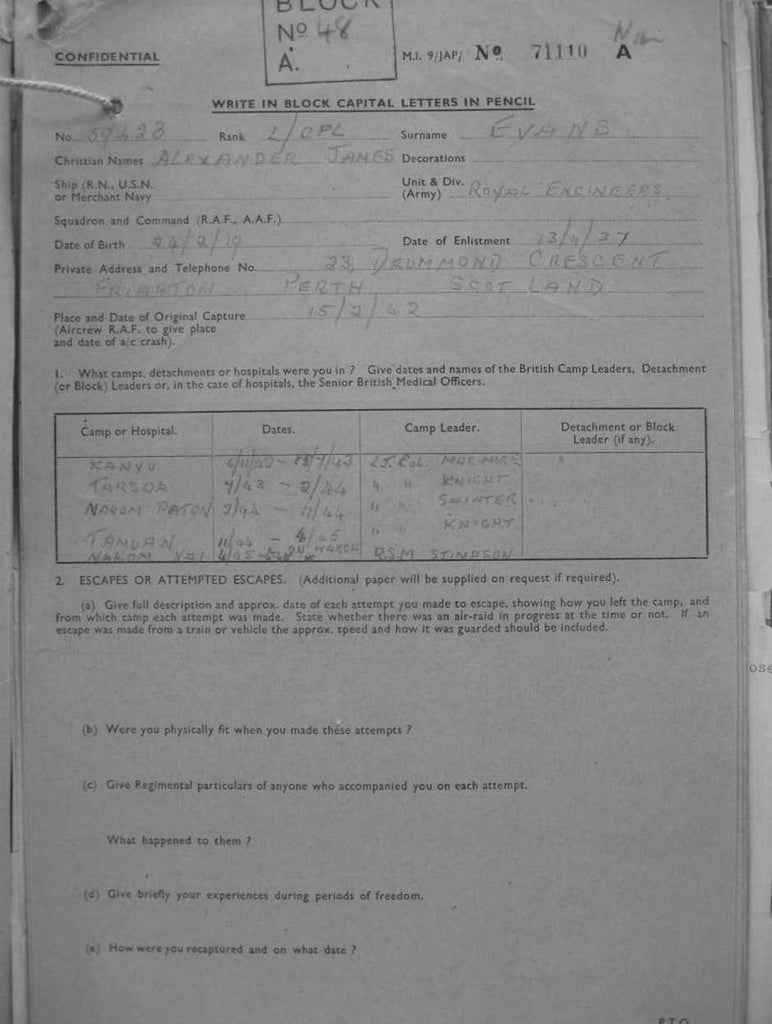 BLOCK
Nº 48
A.
CONFIDENTIAL
M.I. 9/JAP/ Nº 71110 A
WRITE IN BLOCK CAPITAL LETTERS IN PENCIL
No. 59423 Rank L/CPL Surname EVANS
Christian Names ALEXANDER JAMES Decorations
Ship (R.N., U.S.N. or Merchant Navy
Unit & Div. (Army) ROYAL ENGINEERS
Squadron and Command (R.A.F., A.A.F.)
Date of Birth 24/2/19 Date of Enlistment 13/4/37
Private Address and Telephone No. 23, DRUMMOND CRESCENT
FRIARTON PERTH SCOTLAND
Place and Date of Original Capture 15/2/42
(Aircrew R.A.F. to give place
and date of a/c crash).
1. What camps, detachments or hospitals were you in ? Give dates and names of the British Camp Leaders, Detachment
(or Block) Leaders or, in the case of hospitals, the Senior British Medical Officers.
Camp or Hospital. Dates. Camp Leader. Detachment or Block Leader (if any).
KANYU LT. COL.
TARSOA 7/43 - 2/44 " " KNIGHT
NAKOM PATON 2/44 - 11/44 " " SAINTER
TAMUAN 11/44 - 4/45 " " KNIGHT
NAKOM NAI 4/45 - MARCH R.S.M STIMPSON
2. ESCAPES OR ATTEMPTED ESCAPES. (Additional paper will be supplied on request if required).
(a) Give full description and approx. date of each attempt you made to escape, showing how you left the camp, and
from which camp each attempt was made. State whether there was an air-raid in progress at the time or not. If an
escape was made from a train or vehicle the approx. speed and how it was guarded should be included.
(b) Were you physically fit when you made these attempts ?
(c) Give Regimental particulars of anyone who accompanied you on each attempt.
What happened to them ?
(d) Give briefly your experiences during periods of freedom.
(e) How were you recaptured and on what date ?
P.T.O.